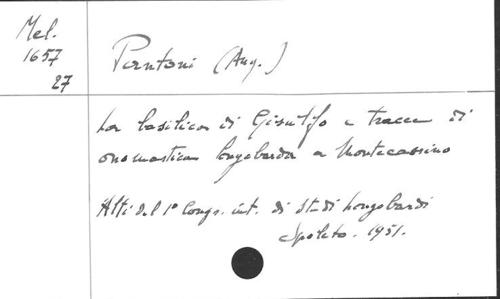 Mel.
1657
27
Pantoni (Ang.)
La basilica di Gisulfo e tracce di
onomastica longobarda a Montecassino
Atti del 1° Congr. int. di studi longobardi
Spoleto. 1951.